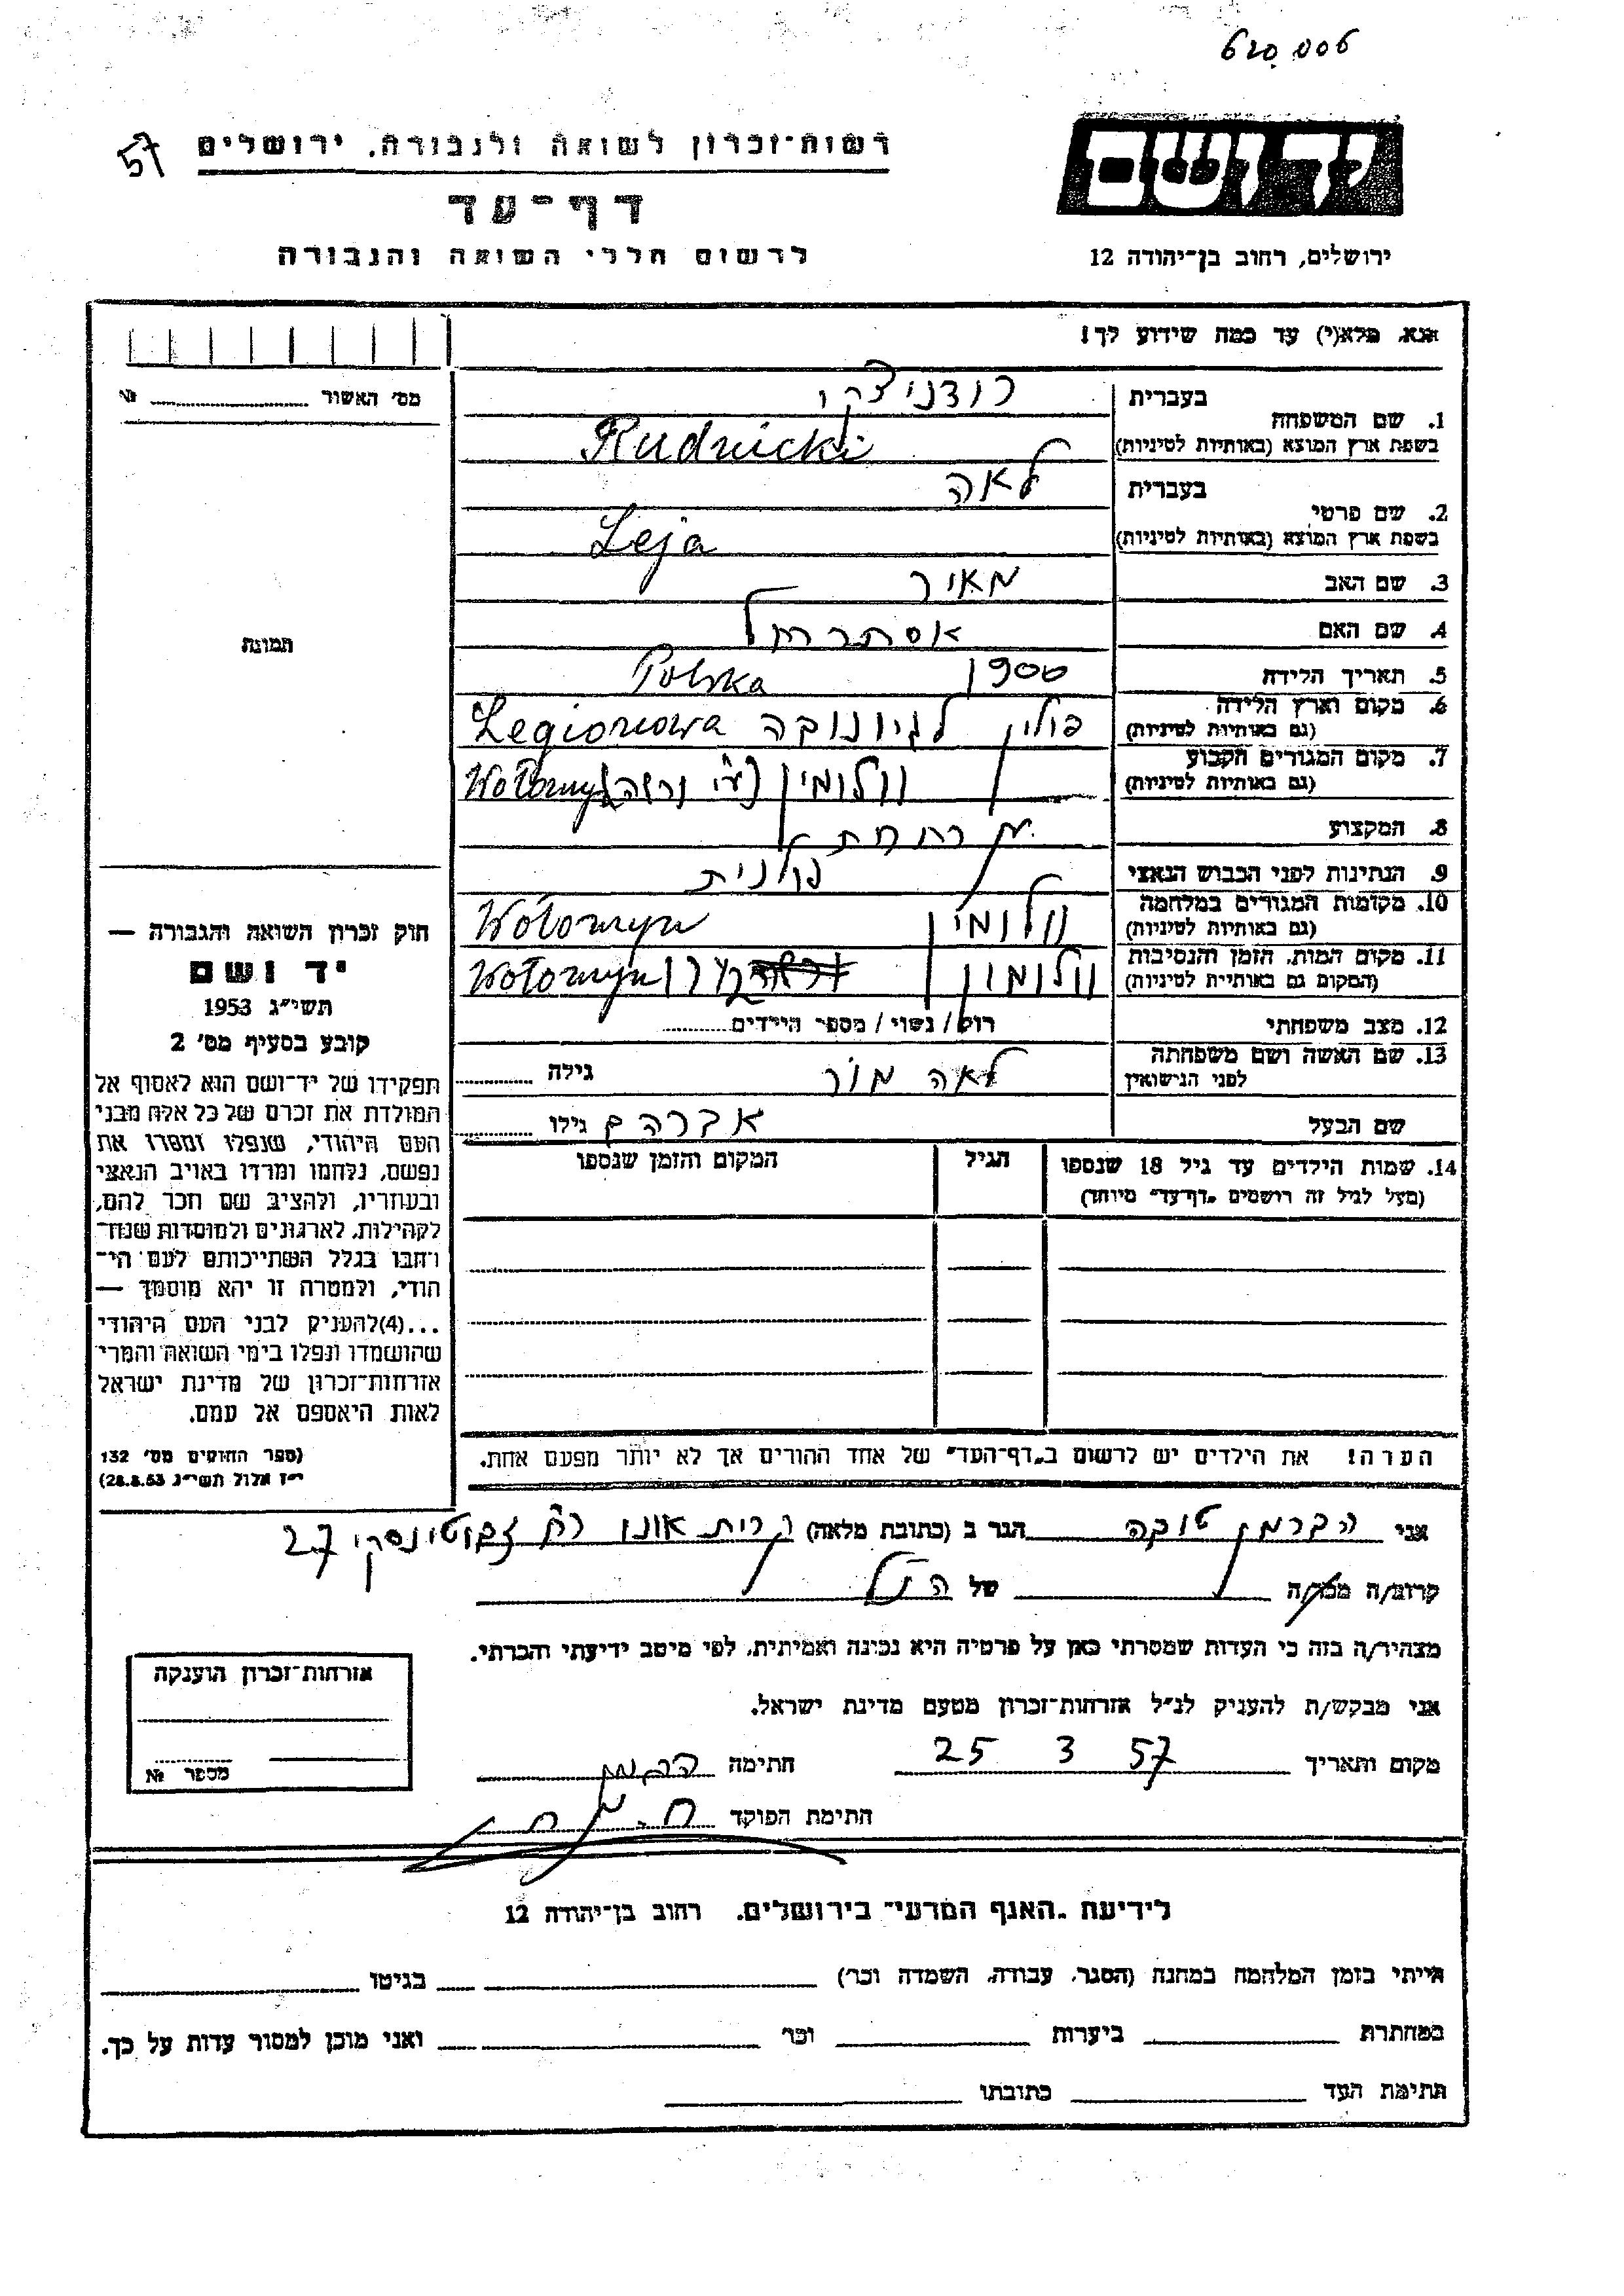 620.006
57
רשות־זכרון לשואה ולגבורה, ירושלים
יד ושם
דף־עד
לרשום חללי השואה והגבורה
ירושלים, רחוב בן־יהודה 12
אנא, מלא(י) עד כמה שידוע לך!
מס׳ האשור №
תמונה
1. שם המשפחה בעברית רודניצקי
בשפת ארץ המוצא (באותיות לטיניות) Rudnicki
2. שם פרטי בעברית לאה
בשפת ארץ המוצא (באותיות לטיניות) Leja
3. שם האב מאיר
4. שם האם אסתר רחל
5. תאריך הלידה 1900 Polska
6. מקום וארץ הלידה (גם באותיות לטיניות) פולין לגיונובה Legionowa
7. מקום המגורים הקבוע (גם באותיות לטיניות) וולומין (ע״י ורשה) Wołomyn
8. המקצוע
9. הנתינות לפני הכבוש הנאצי פולנית
10. מקומות המגורים במלחמה (גם באותיות לטיניות) וולומין Wołomyn
11. מקום המות, הזמן והנסיבות (המקום גם באותיות לטיניות) וולומין Wołomyn
12. מצב משפחתי רוק / נשוי / מספר הילדים
13. שם האשה ושם משפחתה לפני הנישואין לאה מור גילה
שם הבעל אברהם גילו
14. שמות הילדים עד גיל 18 שנספו הגיל המקום והזמן שנספו
(מעל לגיל זה רושמים „דף־עד״ מיוחד)
הערה! את הילדים יש לרשום ב„דף־העד״ של אחד ההורים אך לא יותר מפעם אחת.
חוק זכרון השואה והגבורה —
יד ושם
תשי״ג 1953
קובע בסעיף מס׳ 2
תפקידו של יד־ושם הוא לאסוף אל
המולדת את זכרם של כל אלה מבני
העם היהודי, שנפלו ומסרו את
נפשם, נלחמו ומרדו באויב הנאצי
ובעוזריו, ולהציב שם וזכר להם,
לקהילות, לארגונים ולמוסדות שנח־
רבו בגלל השתייכותם לעם הי־
הודי, ולמטרה זו יהא מוסמך —
...(4)להעניק לבני העם היהודי
שהושמדו ונפלו בימי השואה והמרי
אזרחות־זכרון של מדינת ישראל
לאות היאספם אל עמם.
(ספר החוקים מס׳ 132
י״ז אלול תשי״ג 28.8.53)
אני הברמן טובה הגר ב (כתובת מלאה) קרית אונו רח׳ זבוטינסקי 27
קרוב/ה מכר/ה של הנ״ל
מצהיר/ה בזה כי העדות שמסרתי כאן על פרטיה היא נכונה ואמיתית, לפי מיטב ידיעתי והכרתי.
אני מבקש/ת להעניק לנ״ל אזרחות־זכרון מטעם מדינת ישראל.
מקום ותאריך 25 3 57 חתימה הברמן
חתימת הפוקד
אזרחות־זכרון הוענקה
מספר №
לידיעת „האגף המדעי״ בירושלים, רחוב בן־יהודה 12
הייתי בזמן המלחמה במחנה (הסגר, עבודה, השמדה וכו׳) בגיטו
במחתרת ביערות וכו׳ ואני מוכן למסור עדות על כך.
חתימת העד כתובתו